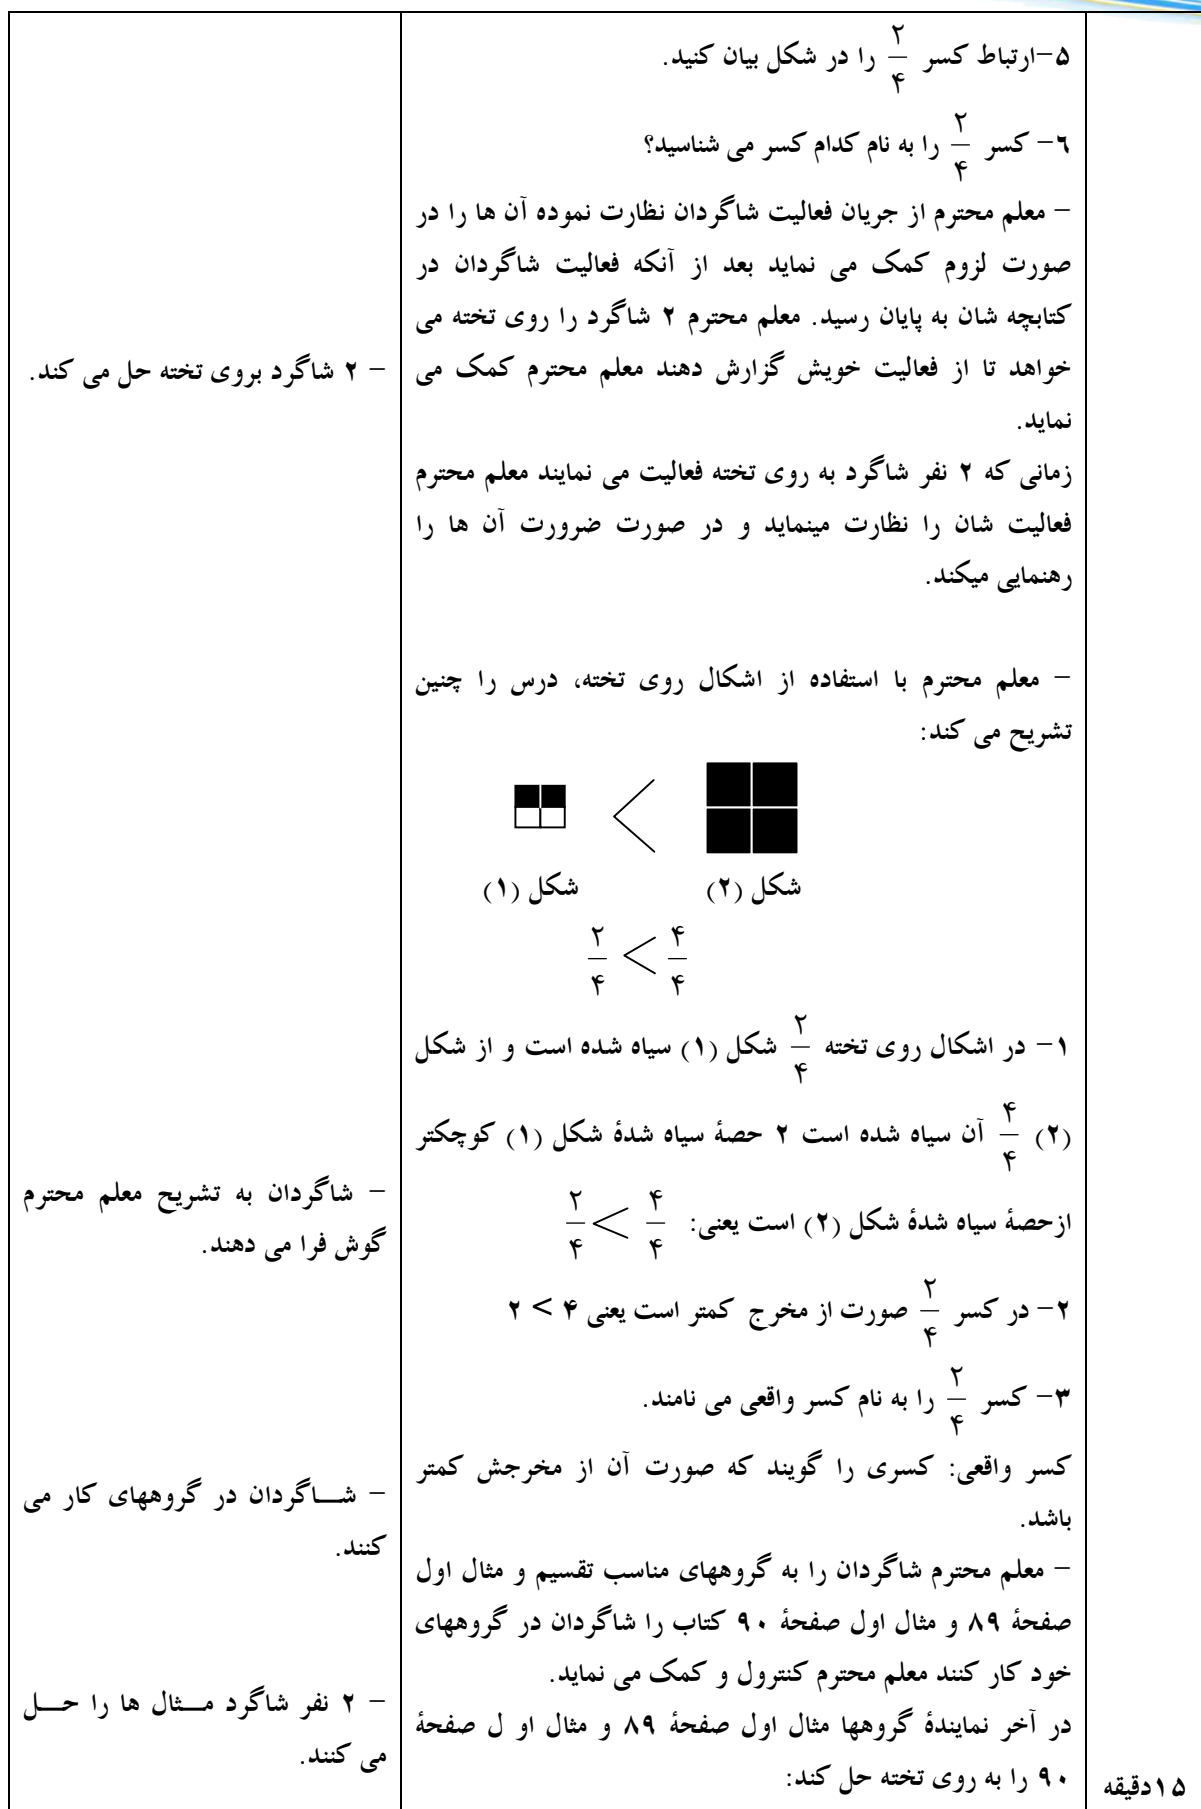 ۵-ارتباط کسر ۲/۴ را در شکل بیان کنید.
۶- کسر ۲/۴ را به نام کدام کسر می شناسید؟
- معلم محترم از جریان فعالیت شاگردان نظارت نموده آن ها را در
صورت لزوم کمک می نماید بعد از آنکه فعالیت شاگردان در
کتابچه شان به پایان رسید. معلم محترم ۲ شاگرد را روی تخته می
خواهد تا از فعالیت خویش گزارش دهند معلم محترم کمک می
نماید.
زمانی که ۲ نفر شاگرد به روی تخته فعالیت می نمایند معلم محترم
فعالیت شان را نظارت مینماید و در صورت ضرورت آن ها را
رهنمایی میکند.
- معلم محترم با استفاده از اشکال روی تخته، درس را چنین
تشریح می کند:
<
شکل (۲) شکل (۱)
۲/۴ < ۴/۴
۱- در اشکال روی تخته ۲/۴ شکل (۱) سیاه شده است و از شکل
(۲) ۴/۴ آن سیاه شده است ۲ حصۀ سیاه شدۀ شکل (۱) کوچکتر
ازحصۀ سیاه شدۀ شکل (۲) است یعنی: ۲/۴ < ۴/۴
۲- در کسر ۲/۴ صورت از مخرج کمتر است یعنی ۲ < ۴
۳- کسر ۲/۴ را به نام کسر واقعی می نامند.
کسر واقعی: کسری را گویند که صورت آن از مخرجش کمتر
باشد.
- معلم محترم شاگردان را به گروههای مناسب تقسیم و مثال اول
صفحۀ ۸۹ و مثال اول صفحۀ ۹۰ کتاب را شاگردان در گروههای
خود کار کنند معلم محترم کنترول و کمک می نماید.
در آخر نمایندۀ گروهها مثال اول صفحۀ ۸۹ و مثال او ل صفحۀ
۹۰ را به روی تخته حل کند:
۱۵دقیقه
- ۲ شاگرد بروی تخته حل می کند.
- شاگردان به تشریح معلم محترم
گوش فرا می دهند.
- شـــاگردان در گروههای کار می
کنند.
- ۲ نفر شاگرد مـــثال ها را حـــل
می کنند.